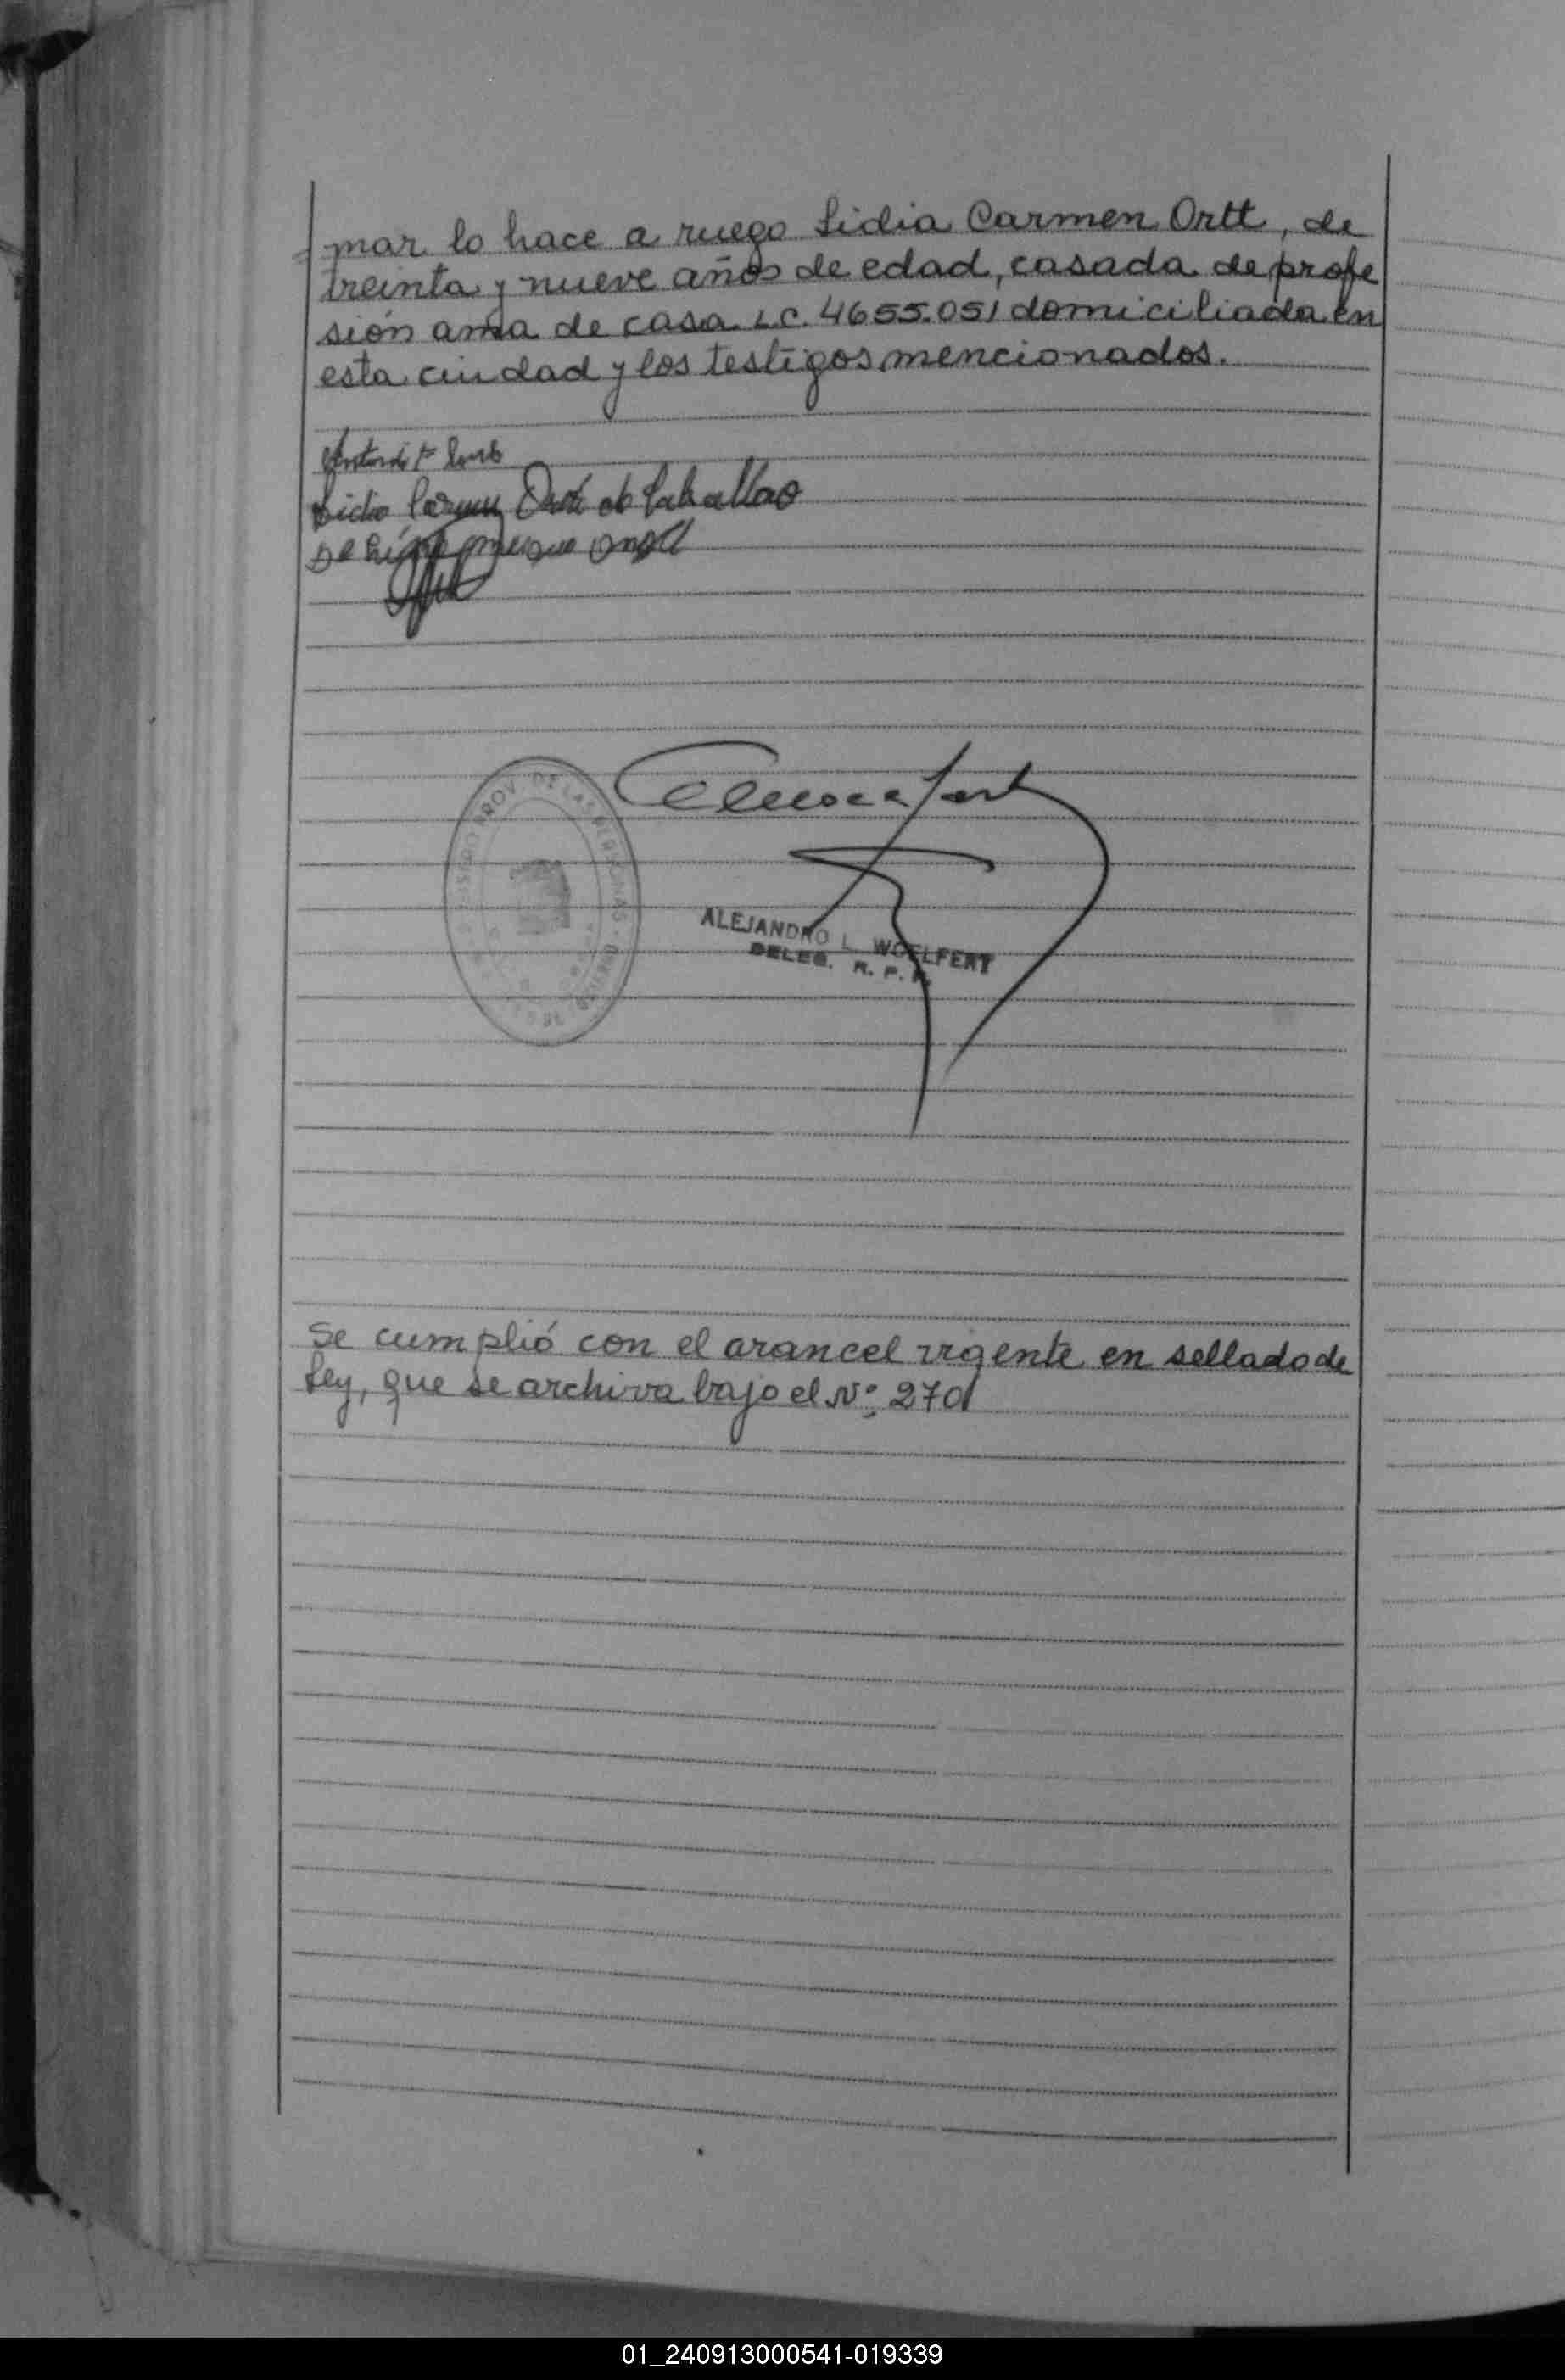 mar lo hace a ruego Lidia Carmen Ortt, de
treinta y nueve años de edad, casada de profe
sión ama de casa L.C. 4655.051 domiciliada en
esta ciudad y los testigos mencionados.
Lidia Carmen Ortt de Caballero
REGISTRO PROV. DE LAS PERSONAS
ALEJANDRO L. WOELFERT
DELEG. R. P. P.
Se cumplió con el arancel vigente en sellado de
Ley, que se archiva bajo el Nº 270
01_240913000541-019339